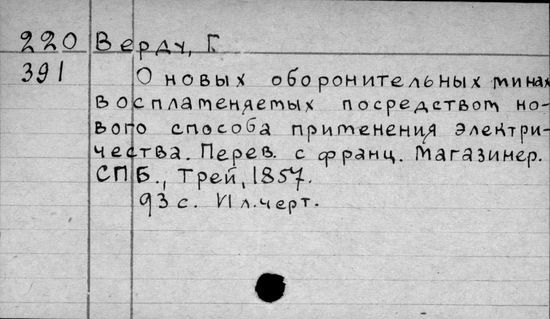 220 Верду, Г.
391 О новых оборонительных минах
воспламеняемых посредством но-
вого способа применения электри-
чества. Перев. с франц. Магазинер.
СПБ., Трей, 1857.
93 с. Ил.черт.